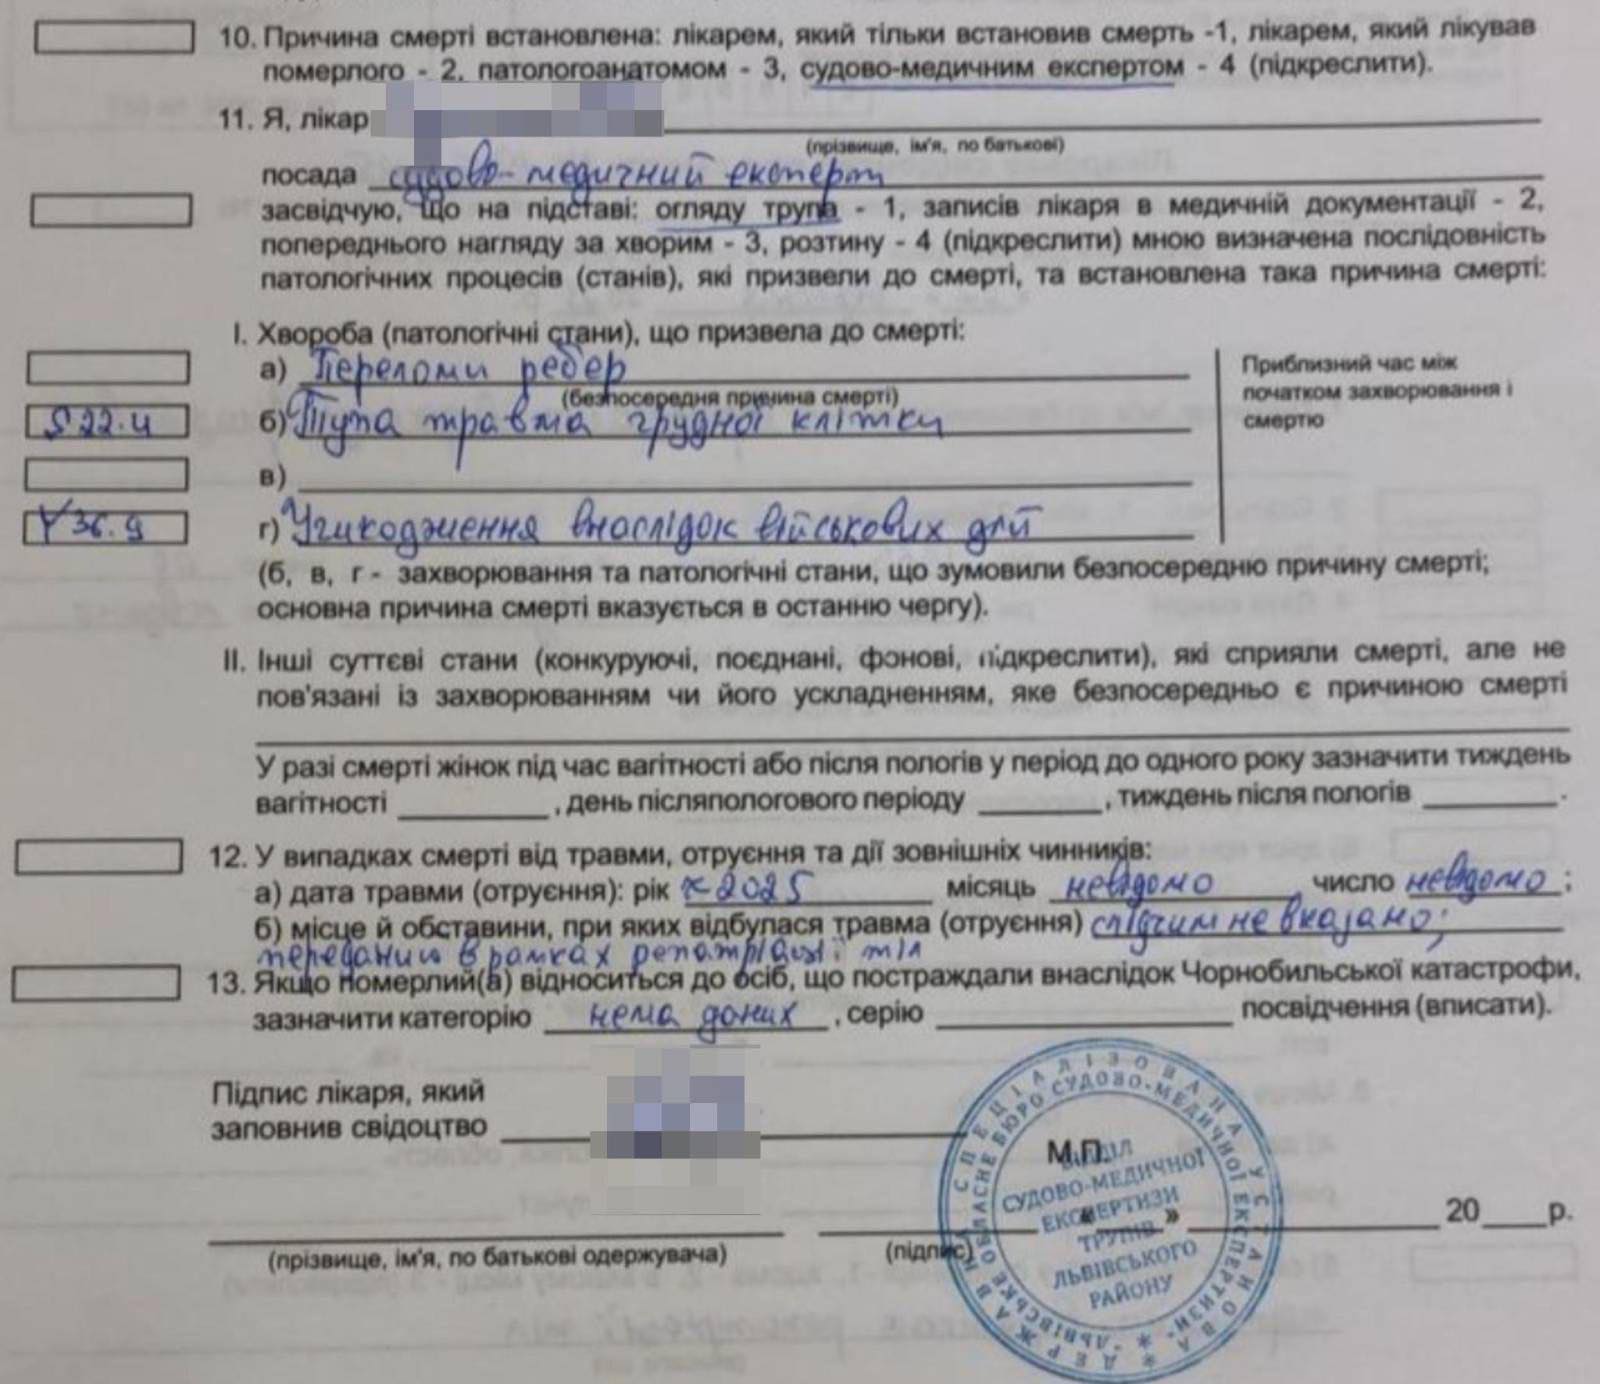 10. Причина смерті встановлена: лікарем, який тільки встановив смерть -1, лікарем, який лікував
померлого - 2, патологоанатомом - 3, судово-медичним експертом - 4 (підкреслити).
11. Я, лікар
(прізвище, ім'я, по батькові)
посада судово-медичний експерт
засвідчую, що на підставі: огляду трупа - 1, записів лікаря в медичній документації - 2,
попереднього нагляду за хворим - 3, розтину - 4 (підкреслити) мною визначена послідовність
патологічних процесів (станів), які призвели до смерті, та встановлена така причина смерті:
І. Хвороба (патологічні стани), що призвела до смерті:
а) Переломи ребер
(безпосередня причина смерті)
S 22.4 б) Тупа травма грудної клітки
в)
Y 36.9 г) Ушкодження внаслідок військових дій
Приблизний час між
початком захворювання і
смертю
(б, в, г - захворювання та патологічні стани, що зумовили безпосередню причину смерті;
основна причина смерті вказується в останню чергу).
ІІ. Інші суттєві стани (конкуруючі, поєднані, фонові, підкреслити), які сприяли смерті, але не
пов'язані із захворюванням чи його ускладненням, яке безпосередньо є причиною смерті
У разі смерті жінок під час вагітності або після пологів у період до одного року зазначити тиждень
вагітності , день післяпологового періоду , тиждень після пологів .
12. У випадках смерті від травми, отруєння та дії зовнішніх чинників:
а) дата травми (отруєння): рік 2025 місяць невідомо число невідомо ;
б) місце й обставини, при яких відбулася травма (отруєння) слідчим не вказано;
переданий в рамках репатріації тіл
13. Якщо померлий(а) відноситься до осіб, що постраждали внаслідок Чорнобильської катастрофи,
зазначити категорію нема даних , серію посвідчення (вписати).
Підпис лікаря, який
заповнив свідоцтво
М.П.
« » 20 р.
(прізвище, ім'я, по батькові одержувача) (підпис)
ДЕРЖАВНА СПЕЦІАЛІЗОВАНА УСТАНОВА
ЛЬВІВСЬКЕ ОБЛАСНЕ БЮРО СУДОВО-МЕДИЧНОЇ ЕКСПЕРТИЗИ
ВІДДІЛ
СУДОВО-МЕДИЧНОЇ
ЕКСПЕРТИЗИ
ТРУПІВ
ЛЬВІВСЬКОГО
РАЙОНУ